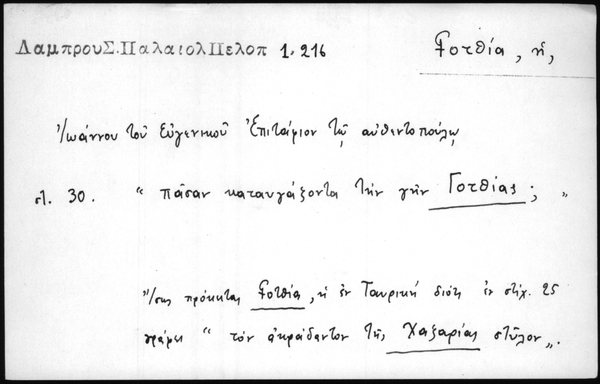 ΛαμπρουΣ.ΠαλαιολΠελοπ 1. 216
Γοτθία, ἡ,
Ἰωάννου τοῦ Εὐγενικοῦ Ἐπιτάφιον τῷ αὐθεντοπούλῳ
στ. 30. “ πᾶσαν καταυγάζοντα τὴν γῆν Γοτθίας; „
Ἴσως πρόκειται Γοτθία, ἡ ἐν Ταυρικῇ διότι ἐν στίχ. 25
γράφει “ τὸν ἀκράδαντον τῆς Χαζαρίας στῦλον „.